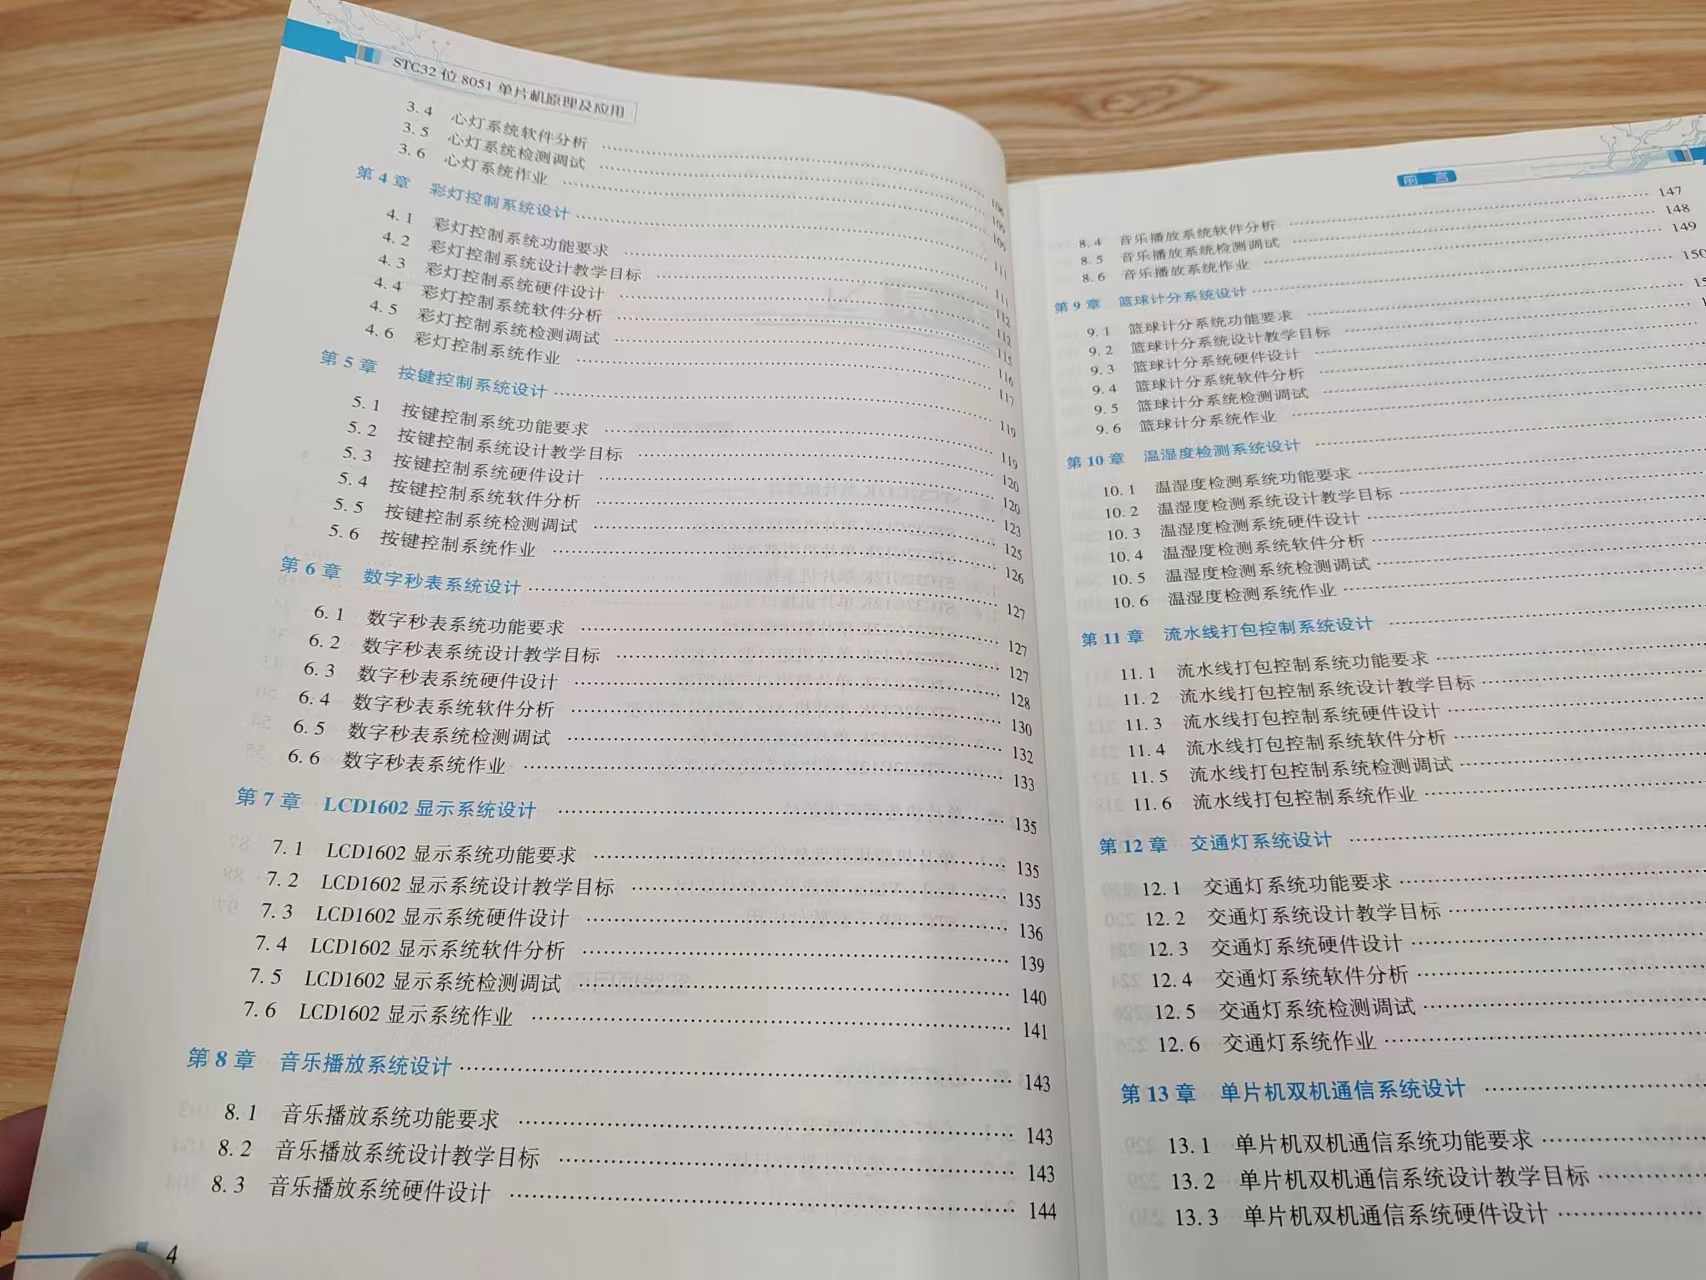 STC32 位 8051 单片机原理及应用
3.4 心灯系统软件分析 106
3.5 心灯系统检测调试 109
3.6 心灯系统作业 109
第 4 章 彩灯控制系统设计 111
4.1 彩灯控制系统功能要求 111
4.2 彩灯控制系统设计教学目标 112
4.3 彩灯控制系统硬件设计 112
4.4 彩灯控制系统软件分析 115
4.5 彩灯控制系统检测调试 116
4.6 彩灯控制系统作业 117
第 5 章 按键控制系统设计 119
5.1 按键控制系统功能要求 119
5.2 按键控制系统设计教学目标 120
5.3 按键控制系统硬件设计 120
5.4 按键控制系统软件分析 123
5.5 按键控制系统检测调试 125
5.6 按键控制系统作业 126
第 6 章 数字秒表系统设计 127
6.1 数字秒表系统功能要求 127
6.2 数字秒表系统设计教学目标 127
6.3 数字秒表系统硬件设计 128
6.4 数字秒表系统软件分析 130
6.5 数字秒表系统检测调试 132
6.6 数字秒表系统作业 133
第 7 章 LCD1602 显示系统设计 135
7.1 LCD1602 显示系统功能要求 135
7.2 LCD1602 显示系统设计教学目标 135
7.3 LCD1602 显示系统硬件设计 136
7.4 LCD1602 显示系统软件分析 139
7.5 LCD1602 显示系统检测调试 140
7.6 LCD1602 显示系统作业 141
第 8 章 音乐播放系统设计 143
8.1 音乐播放系统功能要求 143
8.2 音乐播放系统设计教学目标 143
8.3 音乐播放系统硬件设计 144
4
前 言
8.4 音乐播放系统软件分析 147
8.5 音乐播放系统检测调试 148
8.6 音乐播放系统作业 149
第 9 章 篮球计分系统设计 150
9.1 篮球计分系统功能要求
9.2 篮球计分系统设计教学目标
9.3 篮球计分系统硬件设计
9.4 篮球计分系统软件分析
9.5 篮球计分系统检测调试
9.6 篮球计分系统作业
第 10 章 温湿度检测系统设计
10.1 温湿度检测系统功能要求
10.2 温湿度检测系统设计教学目标
10.3 温湿度检测系统硬件设计
10.4 温湿度检测系统软件分析
10.5 温湿度检测系统检测调试
10.6 温湿度检测系统作业
第 11 章 流水线打包控制系统设计
11.1 流水线打包控制系统功能要求
11.2 流水线打包控制系统设计教学目标
11.3 流水线打包控制系统硬件设计
11.4 流水线打包控制系统软件分析
11.5 流水线打包控制系统检测调试
11.6 流水线打包控制系统作业
第 12 章 交通灯系统设计
12.1 交通灯系统功能要求
12.2 交通灯系统设计教学目标
12.3 交通灯系统硬件设计
12.4 交通灯系统软件分析
12.5 交通灯系统检测调试
12.6 交通灯系统作业
第 13 章 单片机双机通信系统设计
13.1 单片机双机通信系统功能要求
13.2 单片机双机通信系统设计教学目标
13.3 单片机双机通信系统硬件设计